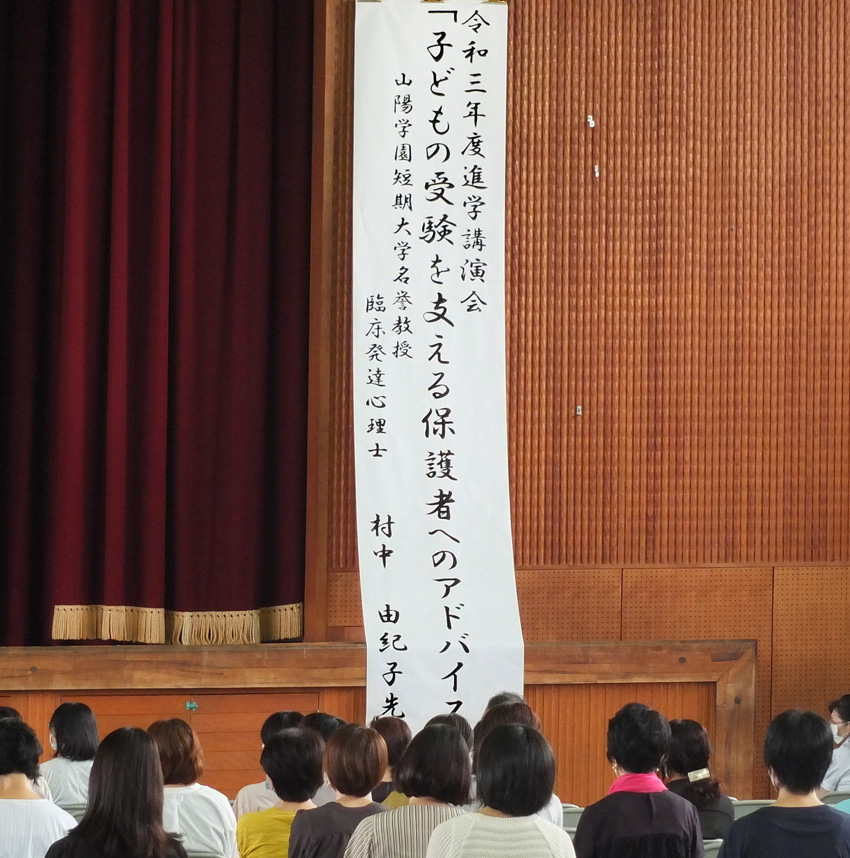 令和三年度進学講演会
「子どもの受験を支える保護者へのアドバイス
山陽学園短期大学名誉教授
臨床発達心理士 村中 由紀子先